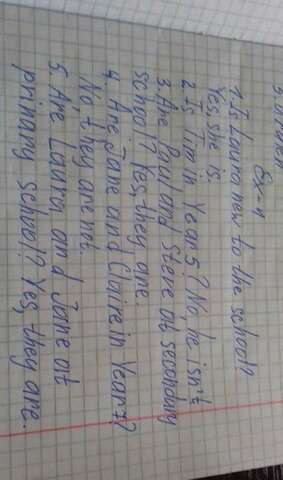 Ex-4
1. Is Laura new to the school?
Yes, she is.
2. Is Tim in Year 5? No he isn't
3. Are Paul and Steve at secondary
school? Yes, they are.
4. Are Jane and Claire in Year 7?
No they are not.
5. Are Laura and Jane at
primary school? Yes, they are.